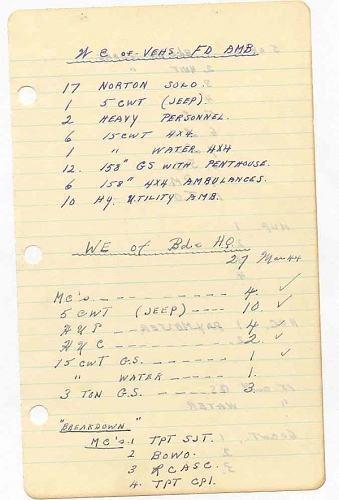 W E of VEHS FD AMB.
17 NORTON SOLO.
1 5 CWT (JEEP).
2 HEAVY PERSONNEL.
6 15 CWT 4X4.
1 " WATER 4X4
12. 158" GS WITH PENTHOUSE.
6 158" 4X4 AMBULANCES.
10 Hy. UTILITY AMB.
WE of Bde HQ
27 Mar 44
MC's. 4. ✓
5 CWT (JEEP) 10. ✓
H U P 4
H U C 2. ✓
15 CWT G.S. 1. ✓
" WATER 1.
3 TON G.S. 3.
"BREAKDOWN"
MC's. 1 TPT SJT.
2 BOWO.
3 RCASC.
4. TPT CPL.